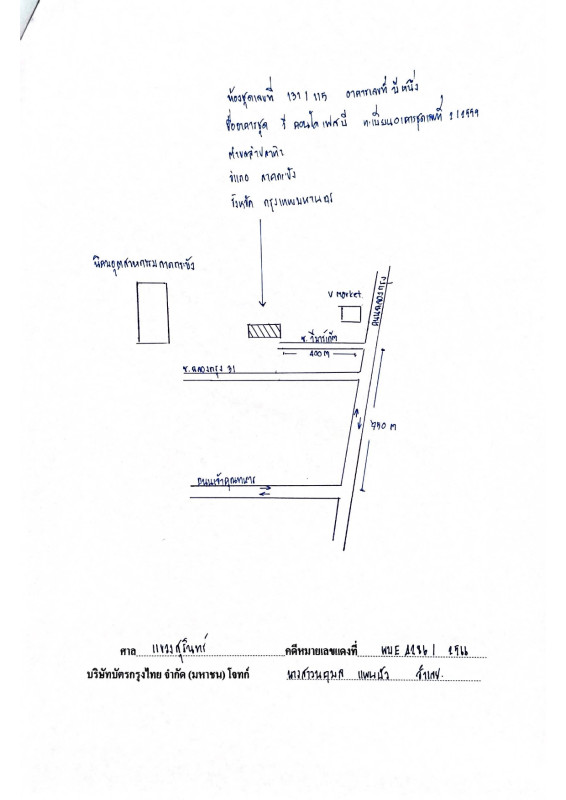 ห้องชุดเลขที่ 131/115 อาคารเลขที่ บีหนึ่ง
ชื่ออาคารชุด วี คอนโด เฟสบี ทะเบียนอาคารชุดเลขที่
ตำบลลำปลาทิว
อำเภอ ลาดกระบัง
จังหวัด กรุงเทพมหานคร
นิคมอุตสาหกรรมลาดกระบัง
V market.
ถนนฉลองกรุง
ซ. วีมาร์เก็ต
400 m
ซ. ฉลองกรุง 31
750 m
ถนนเจ้าคุณทหาร
ศาล แขวงสุรินทร์ คดีหมายเลขแดงที่ ผบE 1286 / 2566
บริษัทบัตรกรุงไทย จำกัด (มหาชน) โจทก์ นางสาวนฤมล จำเลย